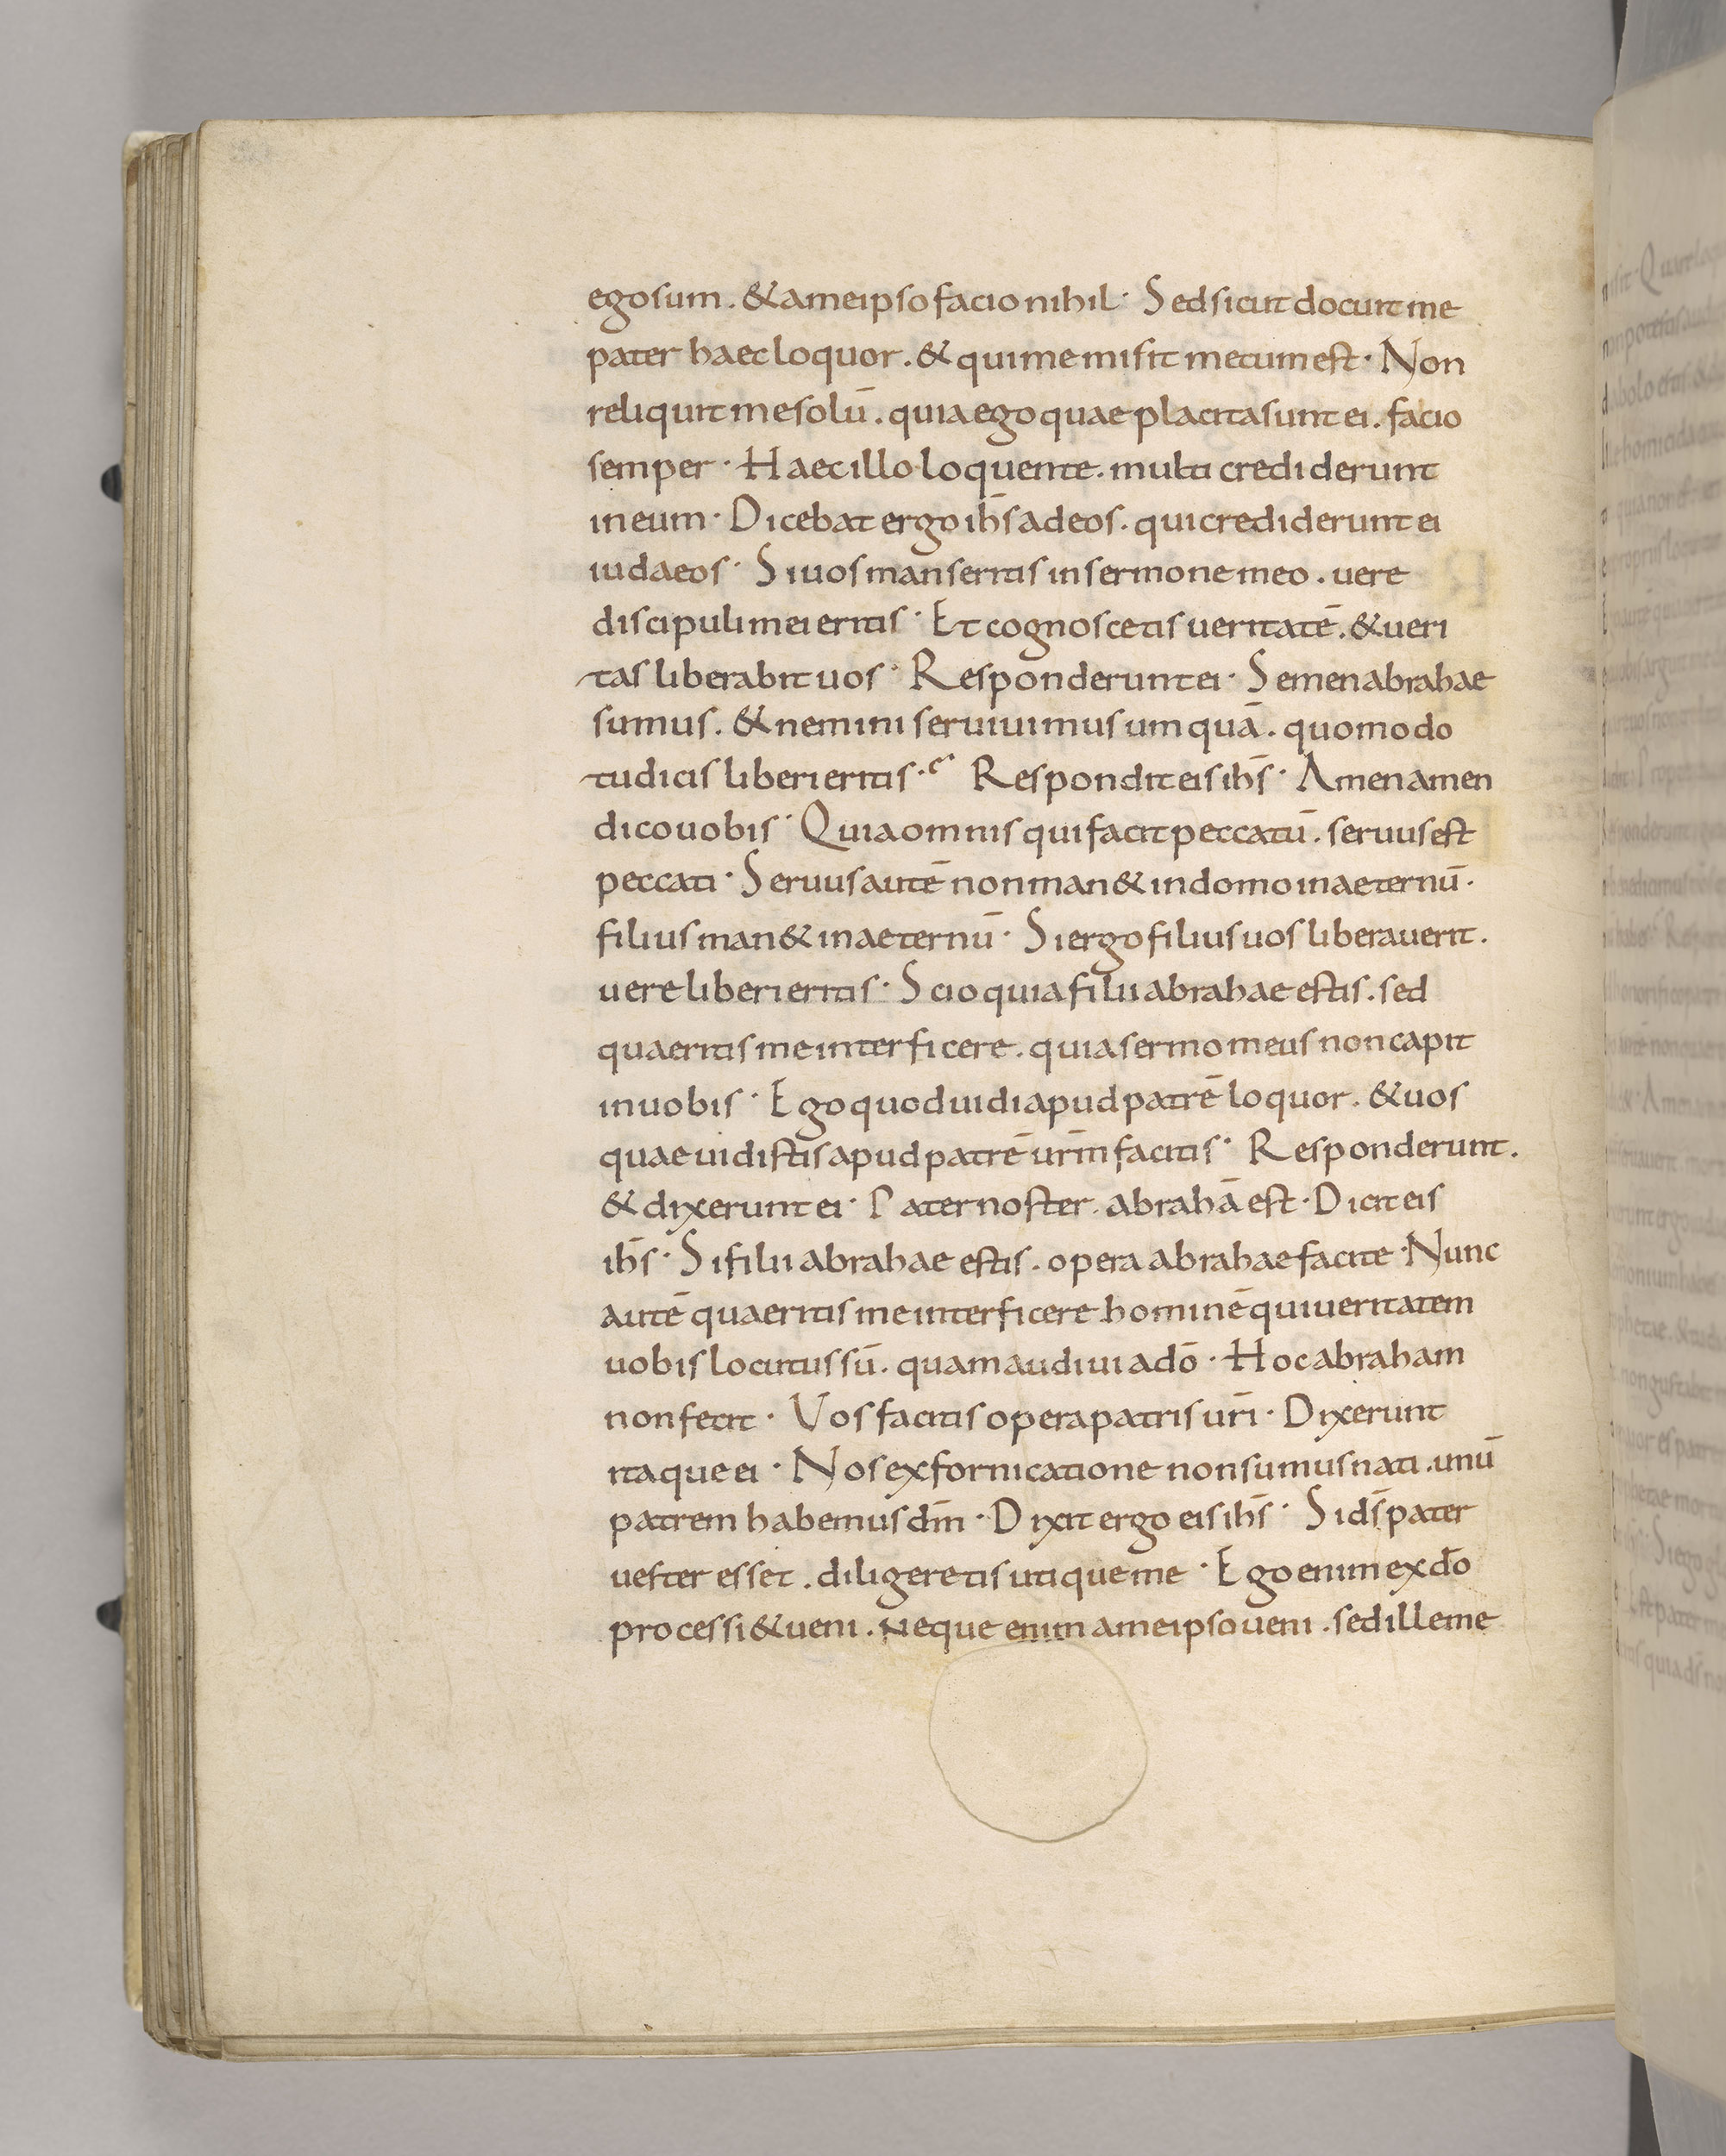 ego sum. & a me ipso facio nihil· Sed sicut docuit me
pater haec loquor. & qui me misit mecum est· Non
reliquit me solū. quia ego quae placita sunt ei. facio
semper· Haec illo loquente. multi crediderunt
in eum· Dicebat ergo ih̄s ad eos. qui crediderunt ei
iudaeos· Si uos manseritis in sermone meo. uere
discipuli mei eritis· Et cognoscetis ueritatē. & ueri
tas liberabit uos· Responderunt ei· Semen abrahae
sumus. & nemini seruiuimus umquā. quomodo
tu dicis liberi eritis· Respondit eis ih̄s· Amen amen
dico uobis· Quia omnis qui facit peccatū. seruus est
peccati· Seruus autē non man& in domo in aeternū·
filius man& in aeternū· Si ergo filius uos liberauerit.
uere liberi eritis· Scio quia filii abrahae estis. sed
quaeritis me interficere. quia sermo meus non capit
in uobis· Ego quod uidi apud patrē loquor. & uos
quae uidistis apud patrē ur̄m facitis· Responderunt.
& dixerunt ei· Pater noster. abrahā est· Dicit eis
ih̄s· Si filii abrahae estis. opera abrahae facite· Nunc
autē quaeritis me interficere hominē qui ueritatem
uobis locutus sū. quam audiui a dō· Hoc abraham
non fecit· Vos facitis opera patris ur̄i· Dixerunt
itaque ei· Nos ex fornicatione non sumus nati. unū
patrem habemus dm̄· Dixit ergo eis ih̄s· Si ds̄ pater
uester esset. diligeretis utique me· Ego enim ex dō
processi & ueni. Neque enim a me ipso ueni. sed ille me